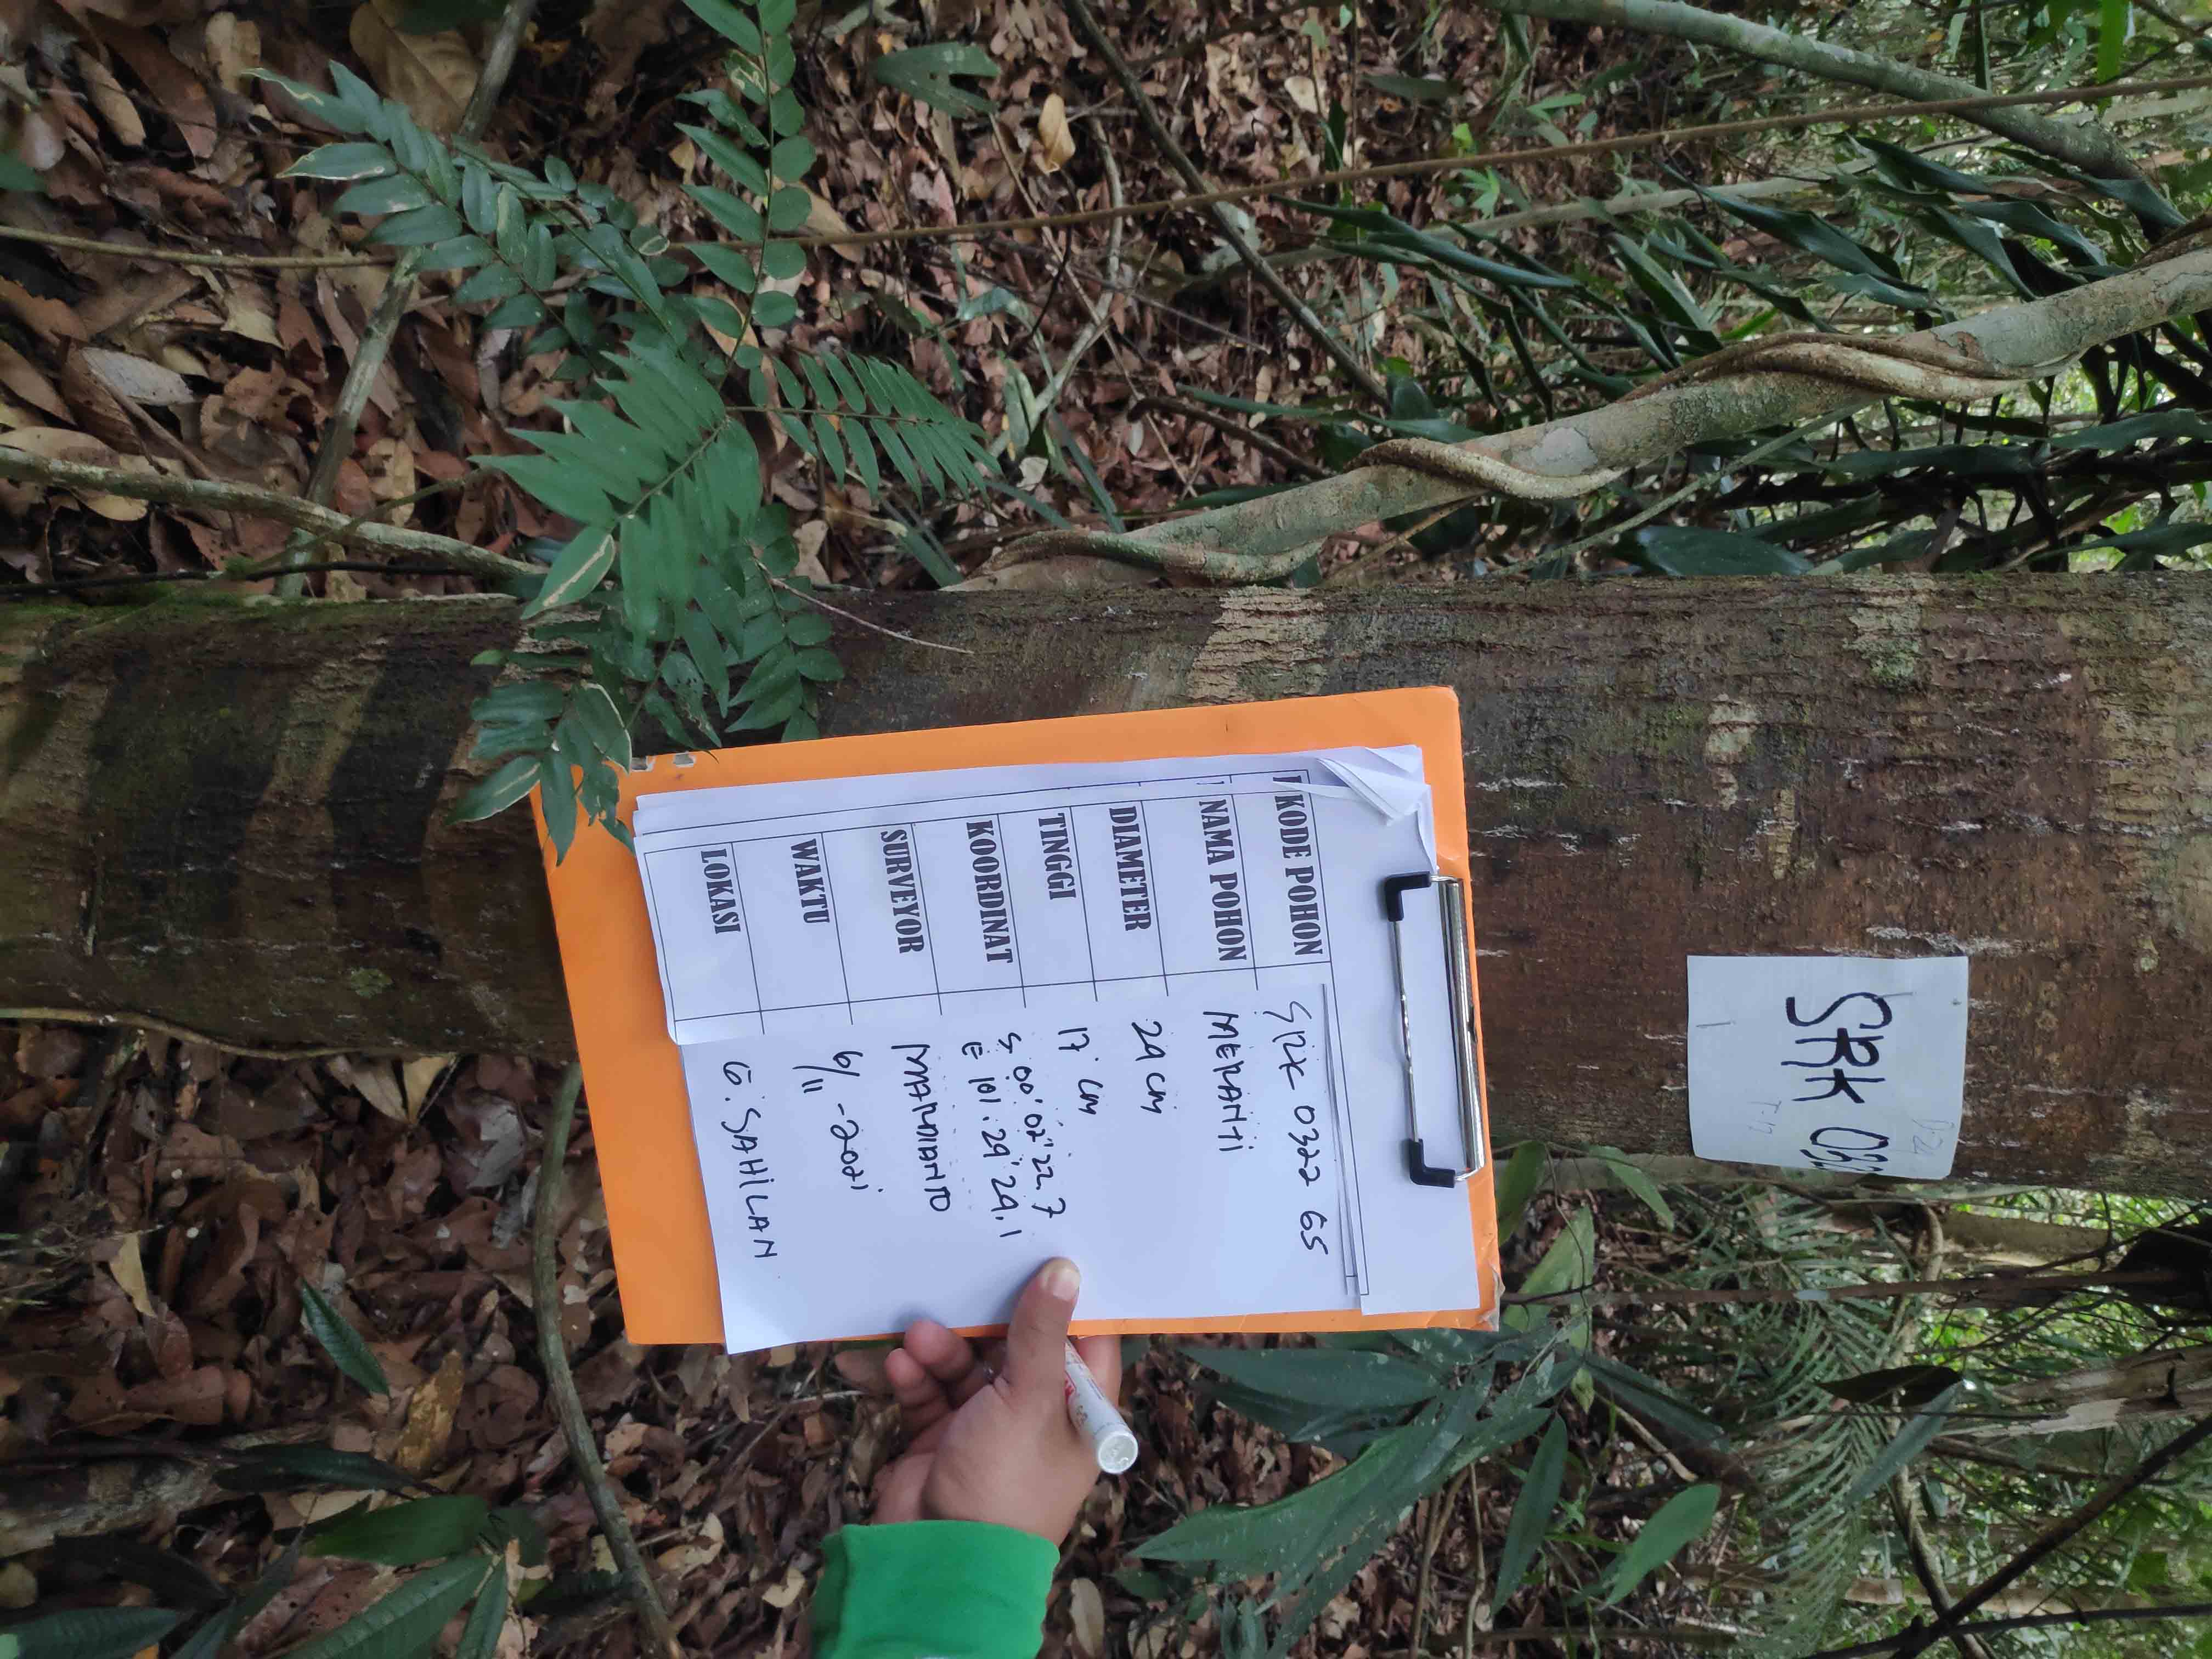 D-24
SRK 032
T-17
KODE POHON SRK 0322 65
NAMA POHON MERANTI
DIAMETER 24 cm
TINGGI 17 cm
KOORDINAT S 00' 02" 22.7
E 101. 29' 29.1
SURVEYOR MARDIANTO
WAKTU 6/11 -2021
LOKASI G. SAHILAN